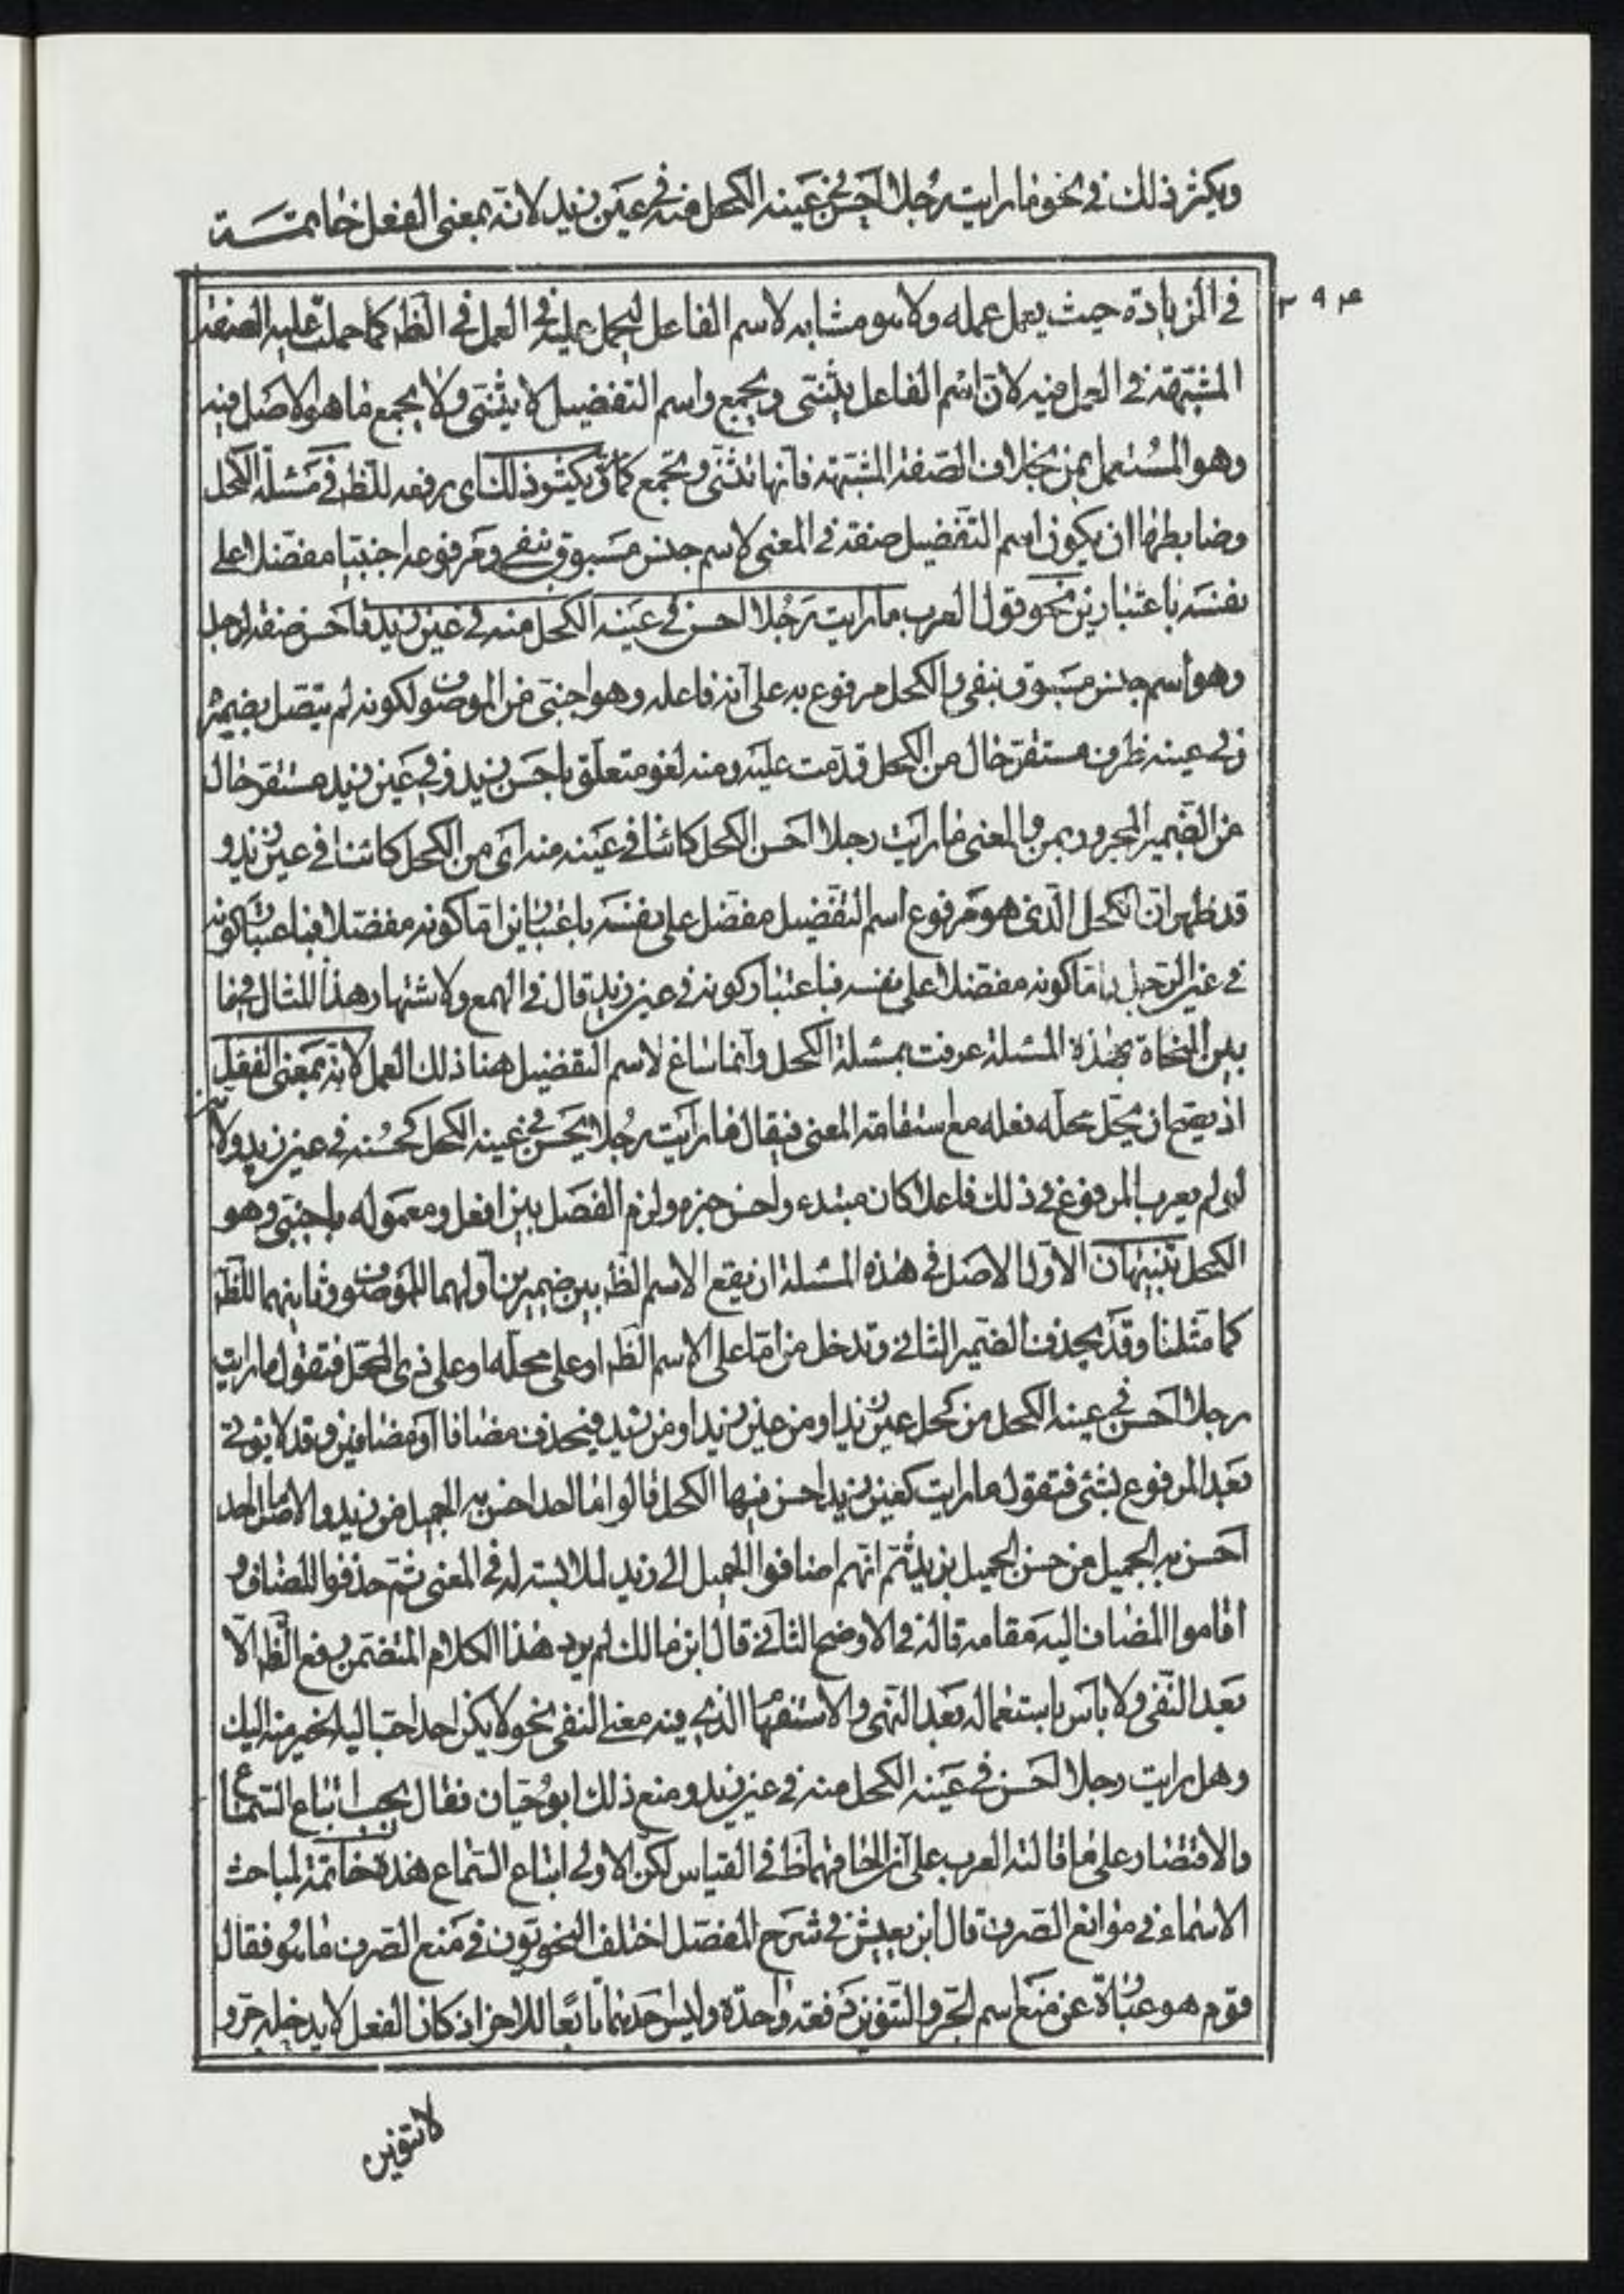 ويكثر ذلك في نحو ما رايت رجلا احسن في عينه الكحل منه في عين زيد لانه بمعنى الفعل خاتمة
٢٩٤
في الزيادة حيث يعمل عمله ولا هو مشابه لاسم الفاعل ليحمل عليه في العمل في الظ كما حملت عليه الصفة
المشبهة في العمل فيه لان اسم الفاعل يثنى ويجمع واسم التفضيل لا يثنى ولا يجمع ما هو الاصل فيه
وهو المستعمل بمن بخلاف الصفة المشبهة فانها تثنى وتجمع كما مر ويكثر ذلك اى رفعه للظ في مسئلة الكحل
وضابطها ان يكون اسم التفضيل صفة في المعنى لاسم جنس مسبوق بنفي ومرفوعه اجنبيا مفضلا على
نفسه باعتبارين نحو قول العرب ما رايت رجلا احسن في عينه الكحل منه في عين زيد فاحسن صفة لرجل
وهو اسم جنس مسبوق بنفي والكحل مرفوع به على انه فاعله وهو اجنبي من الموصوف لكونه لم يتصل بضميره
وفي عينه ظرف مستقر حال من الكحل قدمت عليه ومنه لغو متعلق باحسن وفي عين زيد مستقر حال
من الضمير المجرور بمن والمعنى ما رايت رجلا احسن الكحل كائنا في عينه منه اى من الكحل كائنا في عين زيد و
قد ظهر ان الكحل الذي هو مرفوع اسم التفضيل مفضل على نفسه باعتبارين اما كونه مفضلا فباعتبار كونه
في عين الرجل واما كونه مفضلا على نفسه فباعتبار كونه في عين زيد قال في الهمع ولاشتهار هذا المثال فيما
بين النحاة بهذة المسئلة عرفت بمسئلة الكحل وانما ساغ لاسم التفضيل هنا ذلك العمل لانه بمعنى الفعل
اذ يصح ان يحل محله فعله مع استقامة المعنى فيقال ما رايت رجلا يحسن في عينه الكحل كحسنه في عين زيد ولانه
لو لم يعرب المرفوع في ذلك فاعلا كان مبتدء واحسن خبره ولزم الفصل بين افعل ومعموله باجنبي وهو
الكحل تنبيهان الاول الاصل في هذه المسئلة ان يقع الاسم الظ بين ضميرين اولهما للموصوف وثانيهما للظ
كما مثلنا وقد يحذف الضمير الثاني وتدخل من اما على الاسم الظ او على محله او على ذي المحل فتقول ما رايت
رجلا احسن في عينه الكحل من كحل عين زيد او من عين زيد او من زيد فيحذف مضافا او مضافين وقد لا يؤتى
بعد المرفوع بشئ فتقول ما رايت كعين زيد احسن فيها الكحل قالوا ما احد احسن به الجميل من زيد والاصل ما احد
احسن به الجميل من حسن الجميل بزيد ثم انهم اضافوا الجميل الى زيد لملابسته له في المعنى ثم حذفوا المضاف و
اقاموا المضاف اليه مقامه قاله في الاوضح الثاني قال ابن مالك لم يرد هذا الكلام المتضمن رفع الظ الا
بعد النفي ولا باس باستعماله بعد النهى والاستفهام الذي فيه معنى النفي نحو لا يكن احد احب اليه الخير منه اليك
وهل رايت رجلا احسن في عينه الكحل منه في عين زيد ومنع ذلك ابو حيان فقال يجب اتباع السماع
والاقتصار على ما قالته العرب على ان الحاقهما ظ في القياس لكن الاولى اتباع السماع هذه خاتمة لمباحث
الاسماء في موانع الصرف قال ابن يعيش في شرح المفصل اختلف النحويون في منع الصرف ما هو فقال
قوم هو عبارة عن منع اسم الجر والتنوين دفعة واحدة وليس احدهما تابعا للاخر اذ كان الفعل لا يدخله جر و
لا تنوين